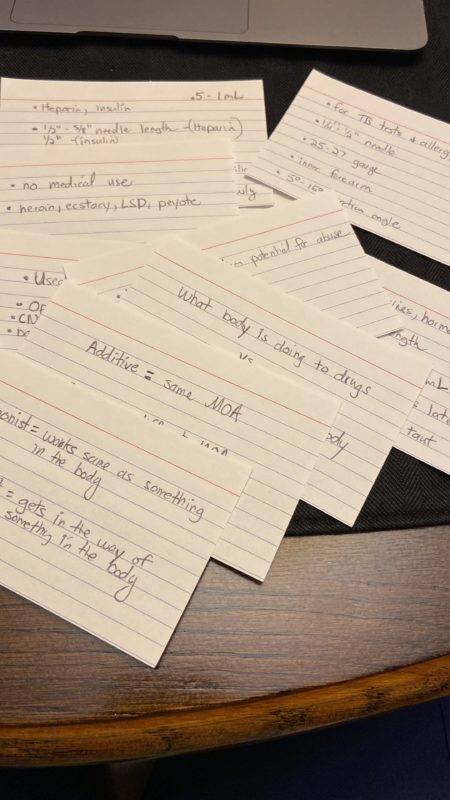 .5 - 1 mL
• Heparin, insulin
• 1/2" - 5/8" needle length - (Heparin)
1/2" - (insulin)
• for TB tests & allerg
• 1/4" - 1/2" needle
• 25-27 gauge
• inner forearm
• 5° - 15°
angle
• no medical use
• heroin, ecstacy, LSD, peyote
potential for abuse
• Used
What body is doing to drugs
vs
ody
Additive = same MOA
onist = works same as something
in the body
= gets in the way of
something in the body
ngth
mL
late
taut